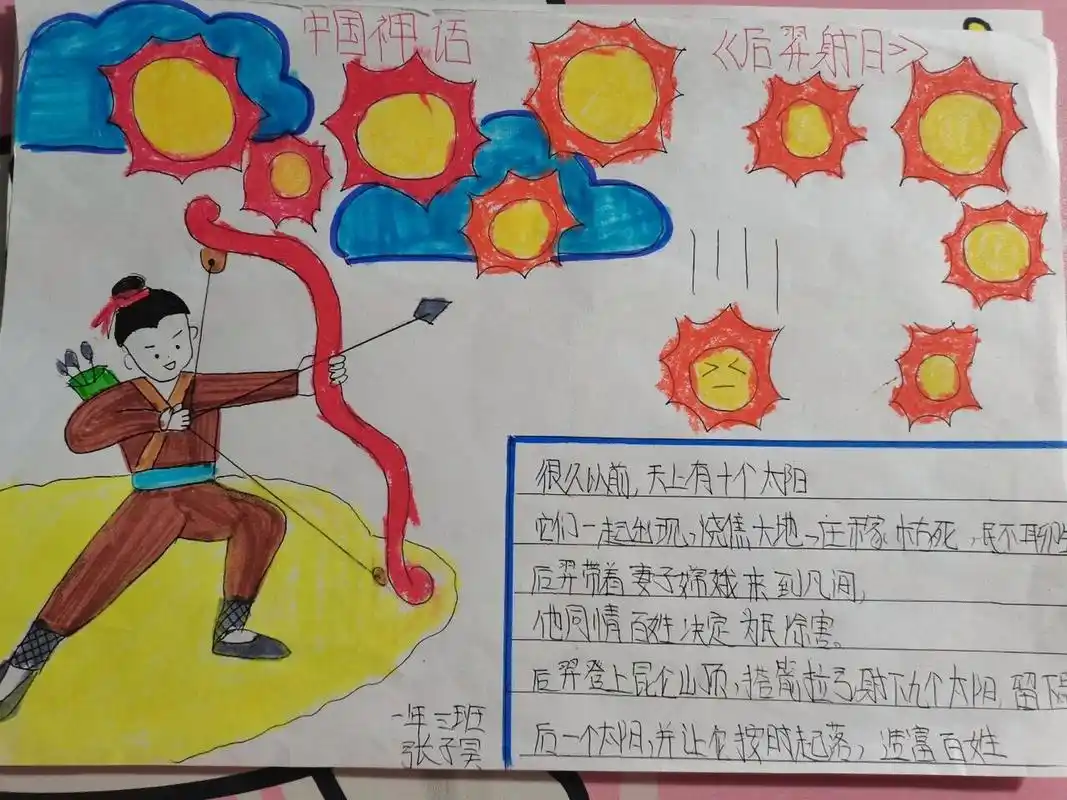 中国神话
《后羿射日》
很久以前,天上有十个太阳
它们一起出现,烧焦大地、庄稼枯死,民不聊生
后羿带着妻子嫦娥来到凡间,
他同情百姓决定为民除害。
后羿登上昆仑山顶,搭箭拉弓射下九个太阳,留下最
后一个太阳,并让它按时起落,造富百姓
一年三班
张子昊